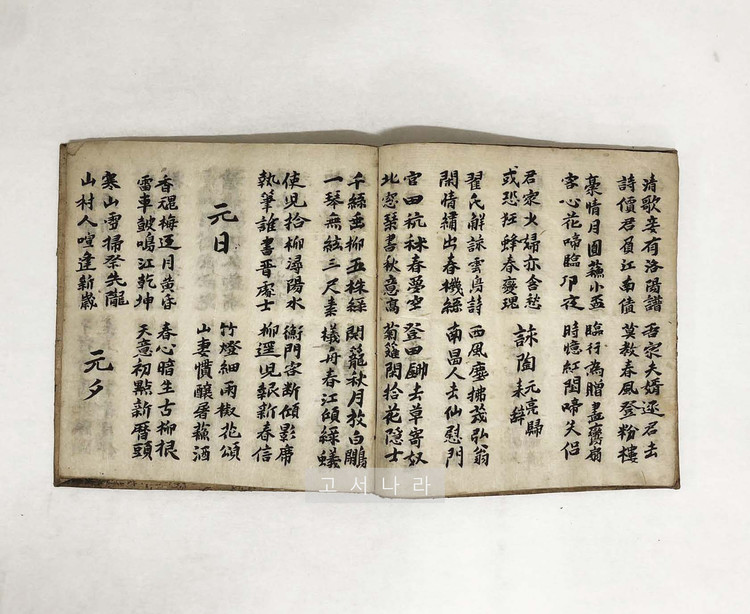 清歌妾有洛陽譜 吾家夫婿逐君去
詩價君負江南債 莫敎春風登粉樓
豪情月圓蘸小盃 臨行為贈畫鷹扇
害心花啼臨卯夜 時憶紅閨啼失侶
君家火婦亦含愁
或恐狂蜂春變瑰
詠陶元亮歸来辭
翟氏解詠雲鳥詩 西風塵拂茲弘翁
閑情繡出春機絲 南昌人去仙慰門
官田秔秫春夢空 登田去草寄奴
北窓琴書秋意高 菊籬閑拾花隱士
千絲垂柳五株綠 閑籠秋月放白鷴
一琴無絃三尺素 檥舟春江傾綠蟻
使児拾柳潯陽水 衡門客断傾影席
執筆誰書晋處士 柳邊児報新春信
元日
竹燈細雨椒花頌
山妻慣釀屠蘇酒
香魂梅逕月黃昏 春心暗生古柳根
雷車皷鳴江乾坤 天意初點新曆頭
寒山雪掃祭先隴
山村人喧逢新歲
元夕
고서나라